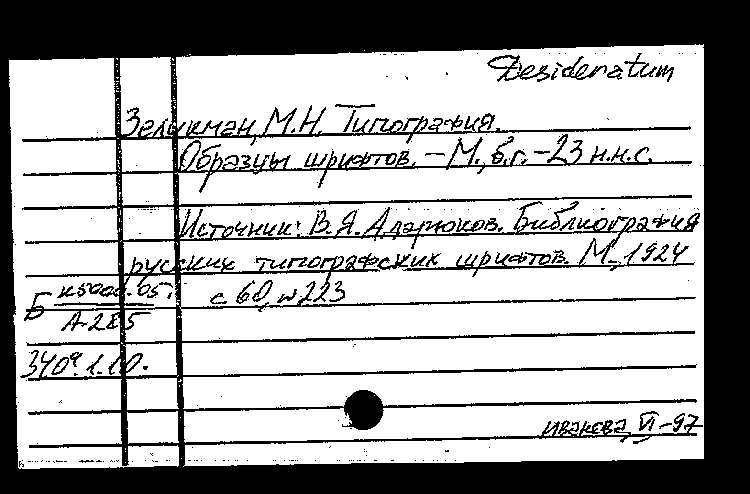 Desideratum
Зеликман, М.Н. Типография.
Образцы шрифтов. – М., б.г. – 23 н.н.с.
Источник: В.Я. Адарюков. Библиография
русских типографских шрифтов. М., 1924
с. 60, № 223
Б
А-285
340а.1.10.
VI-97